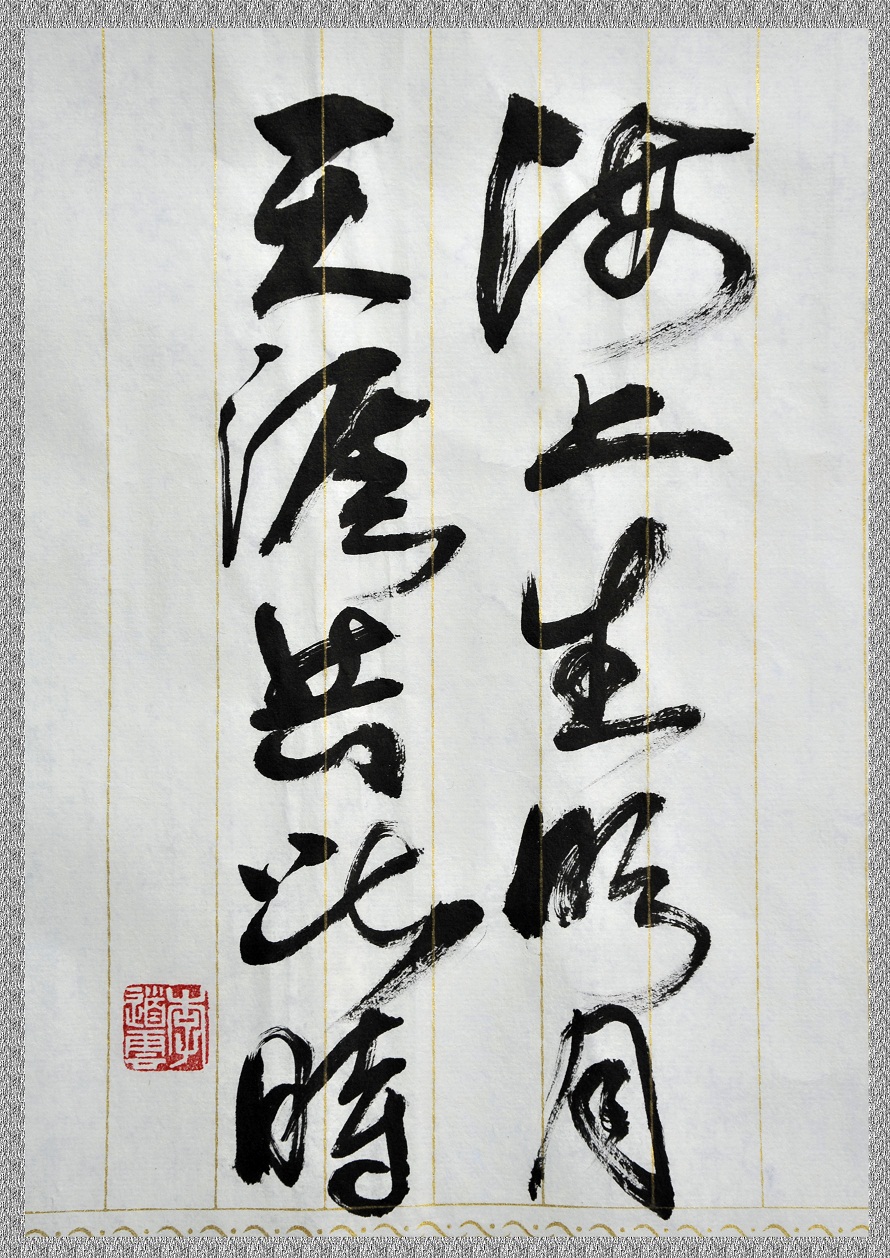 海上生明月
天涯共此時
李道雲